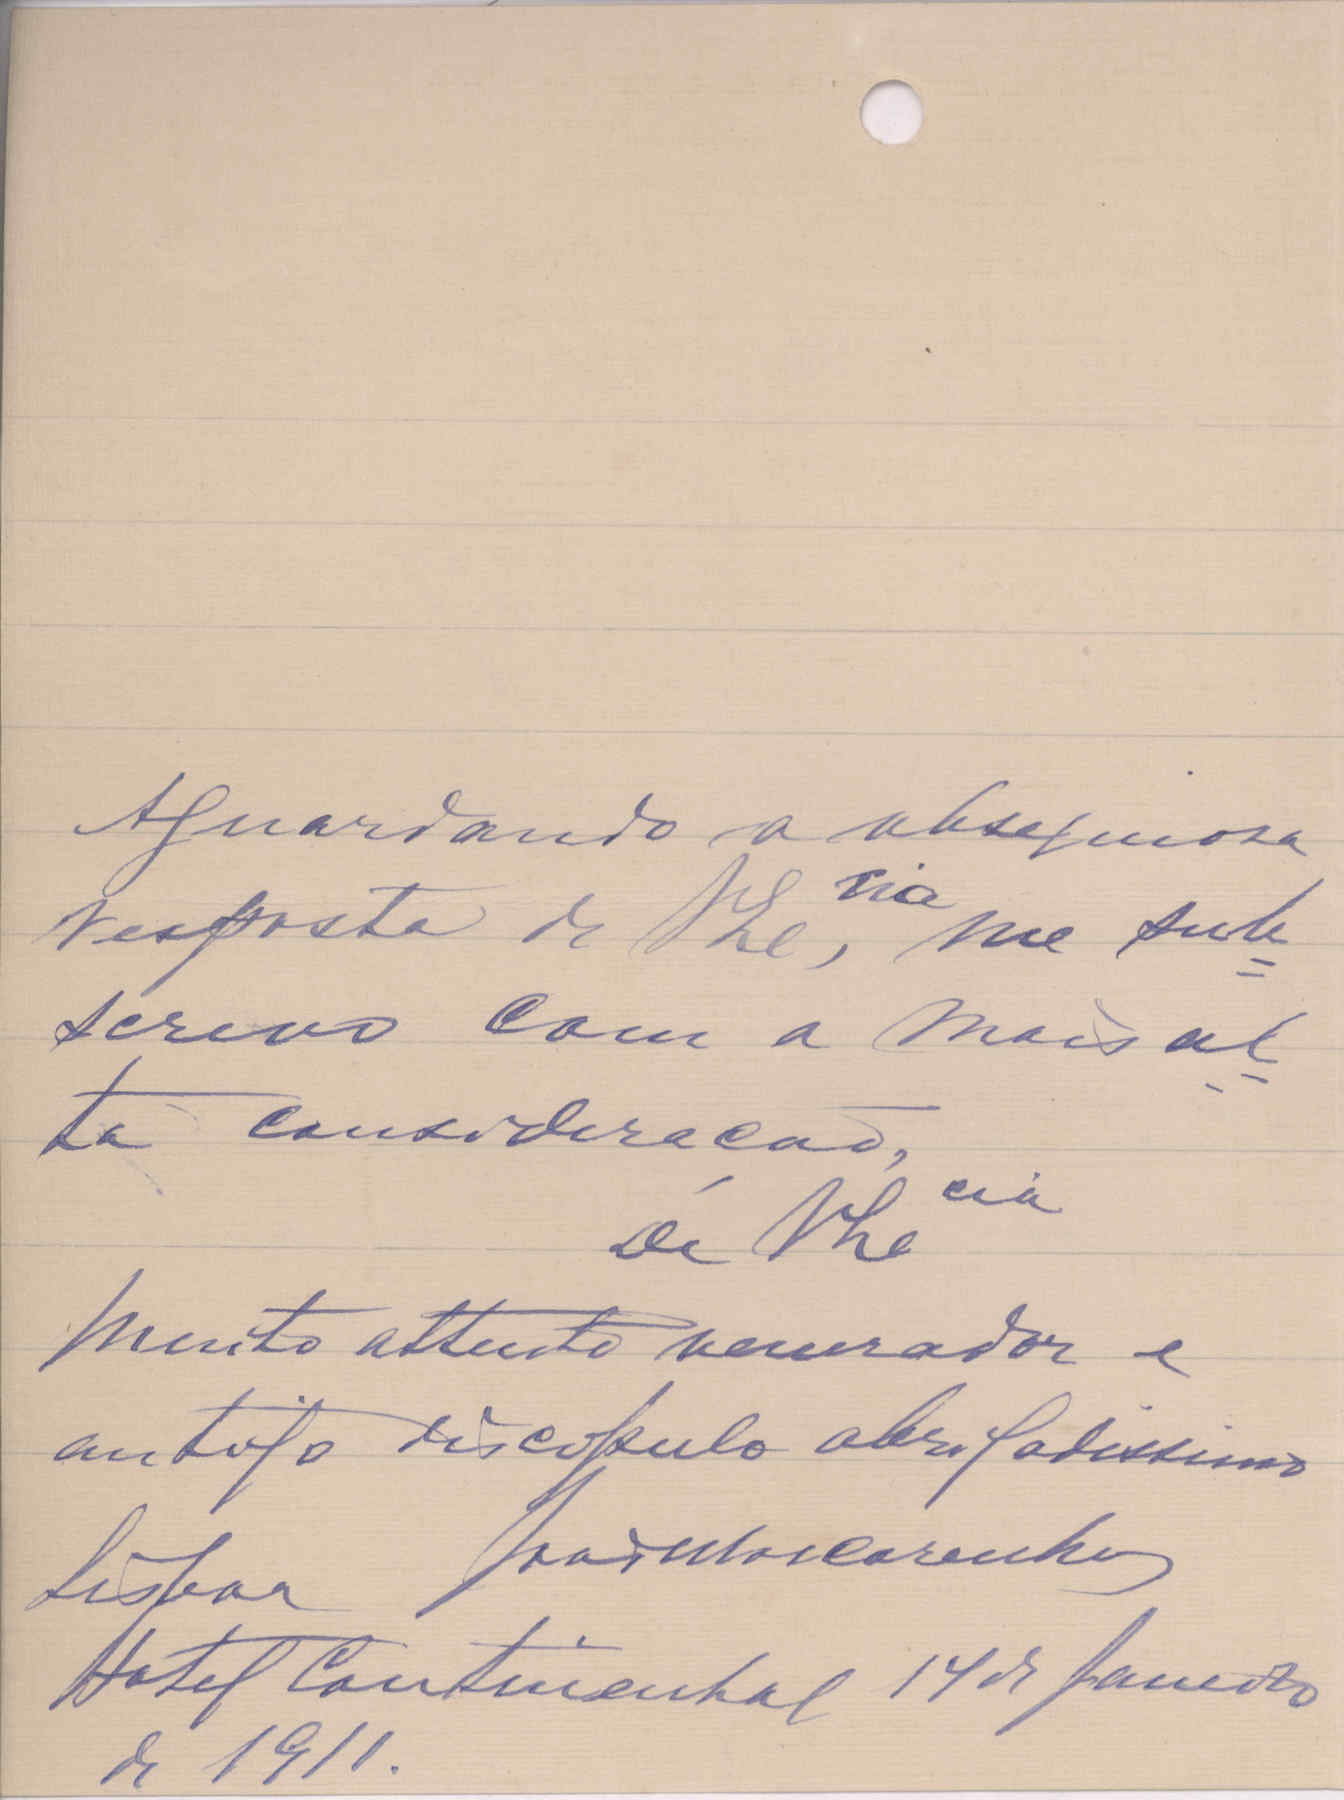 Aguardando a obsequiosa
resposta de Vhe cia, me sub=
screvo com a mais al=
ta consideracaõ,
De Vhe cia
Muito attento venerador e
antigo discipulo obrigadissimo
João Mascarenhas
Lisboa
Hotel Continental 14 de Janeiro
de 1911.